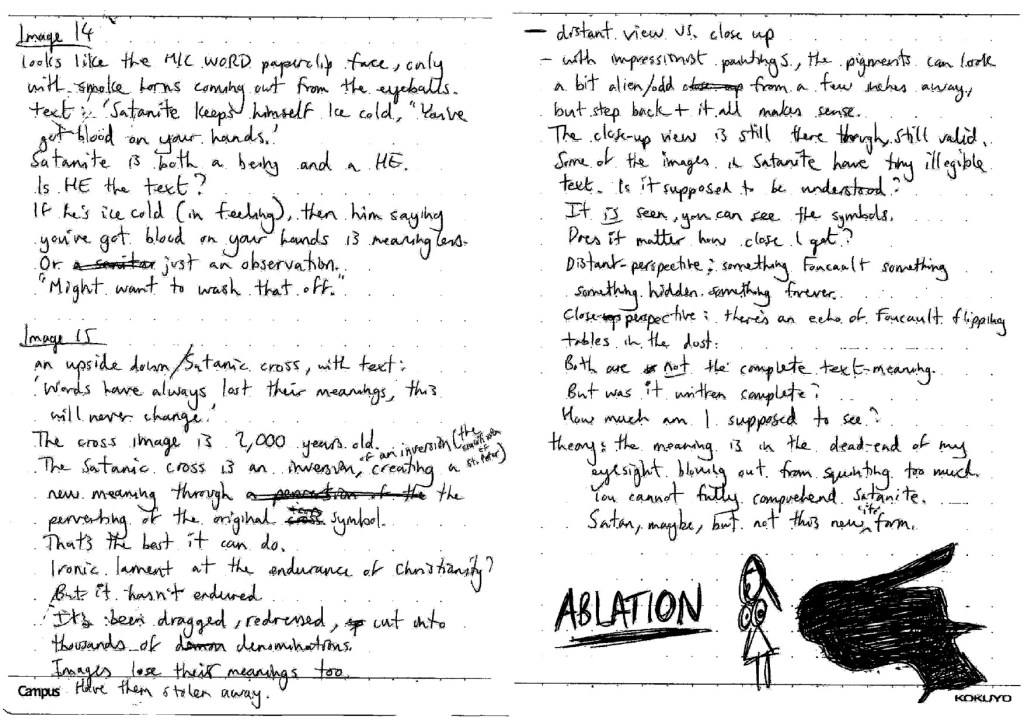 Image 14
looks like the M/C WORD paperclip face, only
with smoke horns coming out from the eyeballs.
text: 'Satanite keeps himself Ice cold, "You've
got blood on your hands.'
Satanite is both a being and a HE.
Is HE the text?
If he's ice cold (in feeling), then him saying
you've got blood on your hands is meaningless.
Or just an observation.
"Might want to wash that off."
Image 15
an upside down/Satanic cross, with text:
'Words have always lost their meanings, this
will never change.'
The cross image is 2,000 years old.
The Satanic cross is an inversion of an inversion (the crucifixion of St. Peter), creating a
new meaning through the
perverting of the original symbol.
That's the best it can do.
Ironic lament at the endurance of Christianity?
But it hasn't endured
It's been dragged, redressed, cut into
thousands of denominations.
Images lose their meanings too.
Have them stolen away.
Campus
— distant view vs. close up
- with impressionist paintings, the pigments can look
a bit alien/odd from a few inches away,
but step back + it all makes sense.
The close-up view is still there though, still valid.
Some of the images in Satanite have tiny illegible
text. Is it supposed to be understood?
It is seen, you can see the symbols.
Does it matter how close I get?
Distant-perspective: something Foucault something
something hidden something forever.
Close perspective: there's an echo of Foucault flipping
tables in the dust.
Both are not the complete text-meaning.
But was it written complete?
How much am I supposed to see?
theory: the meaning is in the dead-end of my
eyesight blowing out from squinting too much.
You cannot fully comprehend Satanite.
Satan, maybe, but not this new form.
ABLATION
KOKUYO